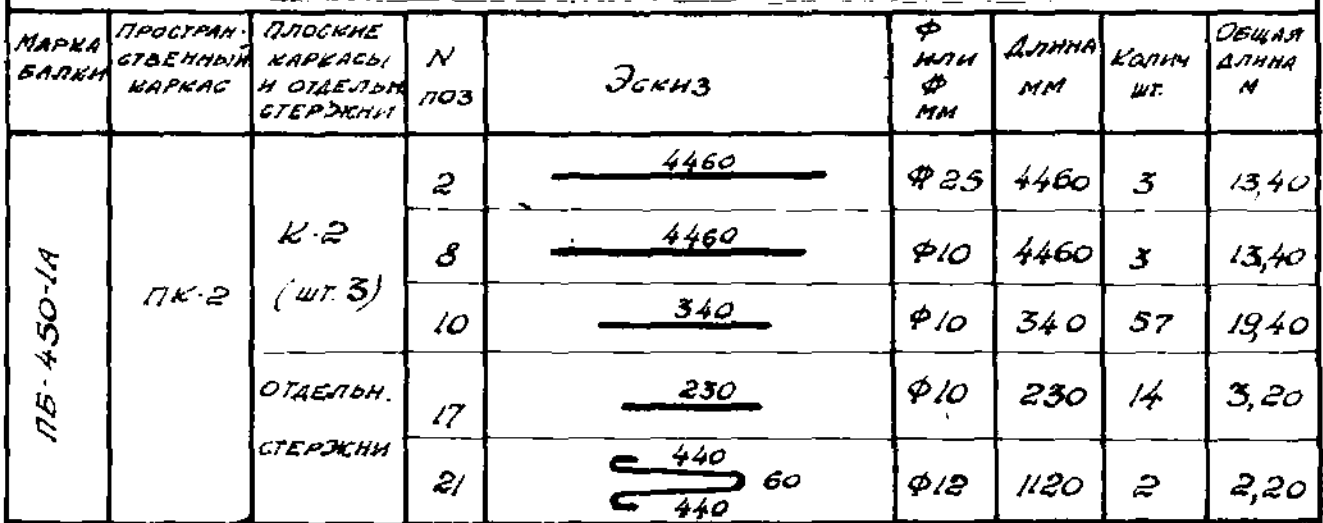 МАРКА БАЛКИ | ПРОСТРАН- СТВЕННЫЙ КАРКАС | ПЛОСКИЕ КАРКАСЫ И ОТДЕЛЬН СТЕРЖНИ | N ПОЗ | Эскиз | Ф ИЛИ Ф ММ | ДЛИНА ММ | Колич шт. | ОБЩАЯ ДЛИНА М
ПБ-450-IА | ПК-2 | К-2 (шт. 3) | 2 | 4460 | Ф25 | 4460 | 3 | 13,40
8 | 4460 | Ф10 | 4460 | 3 | 13,40
10 | 340 | Ф10 | 340 | 57 | 19,40
ОТДЕЛЬН. СТЕРЖНИ | 17 | 230 | Ф10 | 230 | 14 | 3,20
21 | 440 60 440 | Ф12 | 1120 | 2 | 2,20